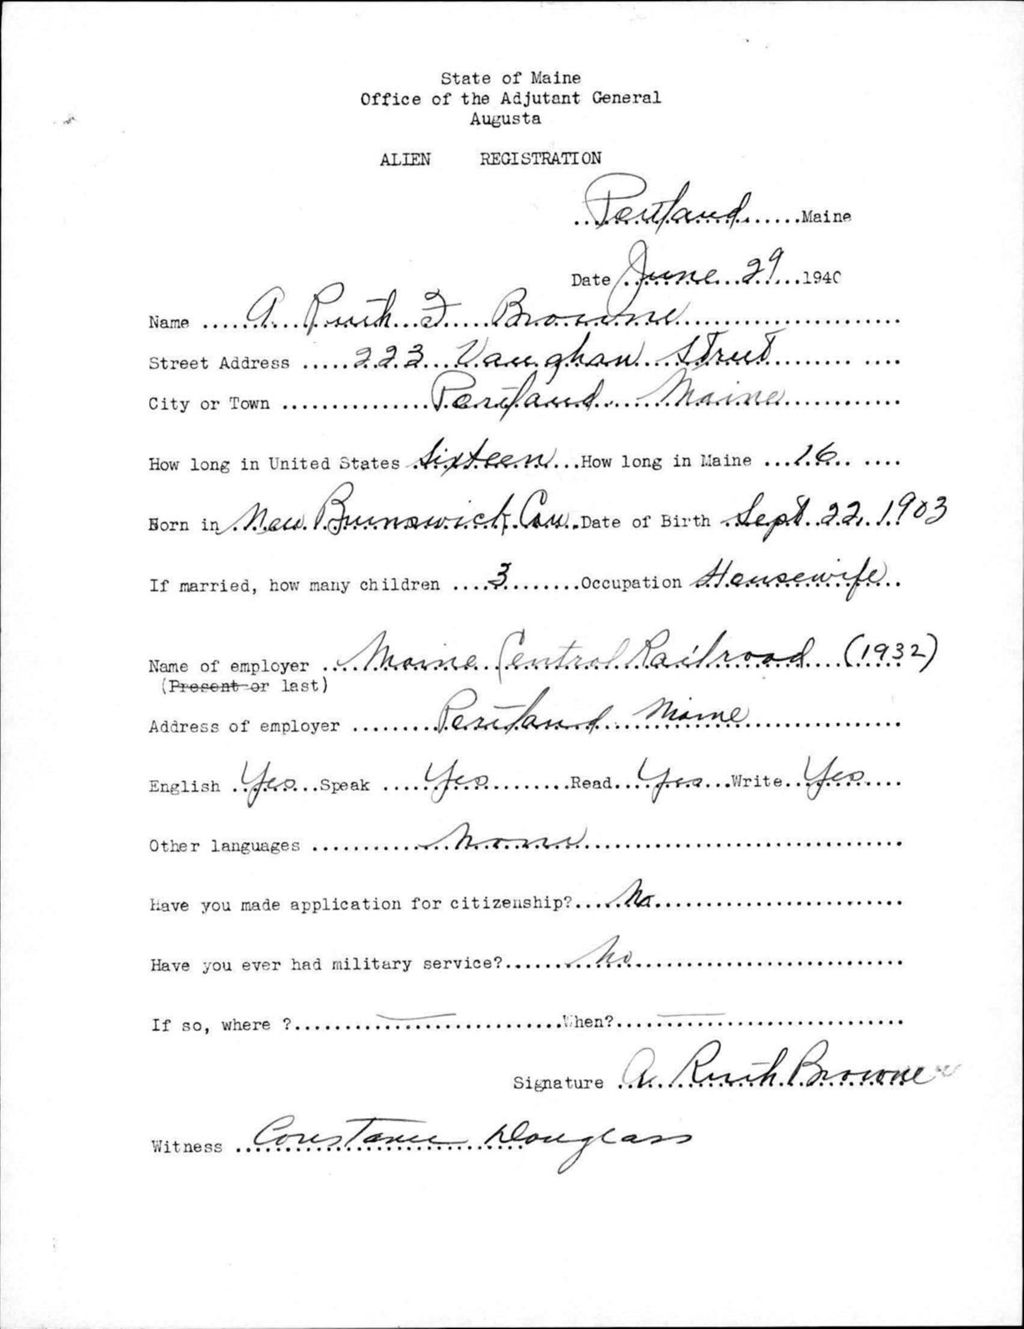 State of Maine
Office of the Adjutant General
Augusta
ALIEN REGISTRATION
Portland Maine
Date June 29 1940
Name A Ruth F Browne
Street Address 223 Vaughan Street
City or Town Portland Maine
How long in United States Sixteen How long in Maine 16
Born in New Brunswick, Can Date of Birth Sept 22, 1903
If married, how many children 3 Occupation Housewife
Name of employer Maine Central Railroad (1932)
(Present or last)
Address of employer Portland Maine
English Yes Speak Yes Read Yes Write Yes
Other languages None
Have you made application for citizenship? No
Have you ever had military service? No
If so, where ? — When? —
Signature A. Ruth Browne
Witness Constance Douglass